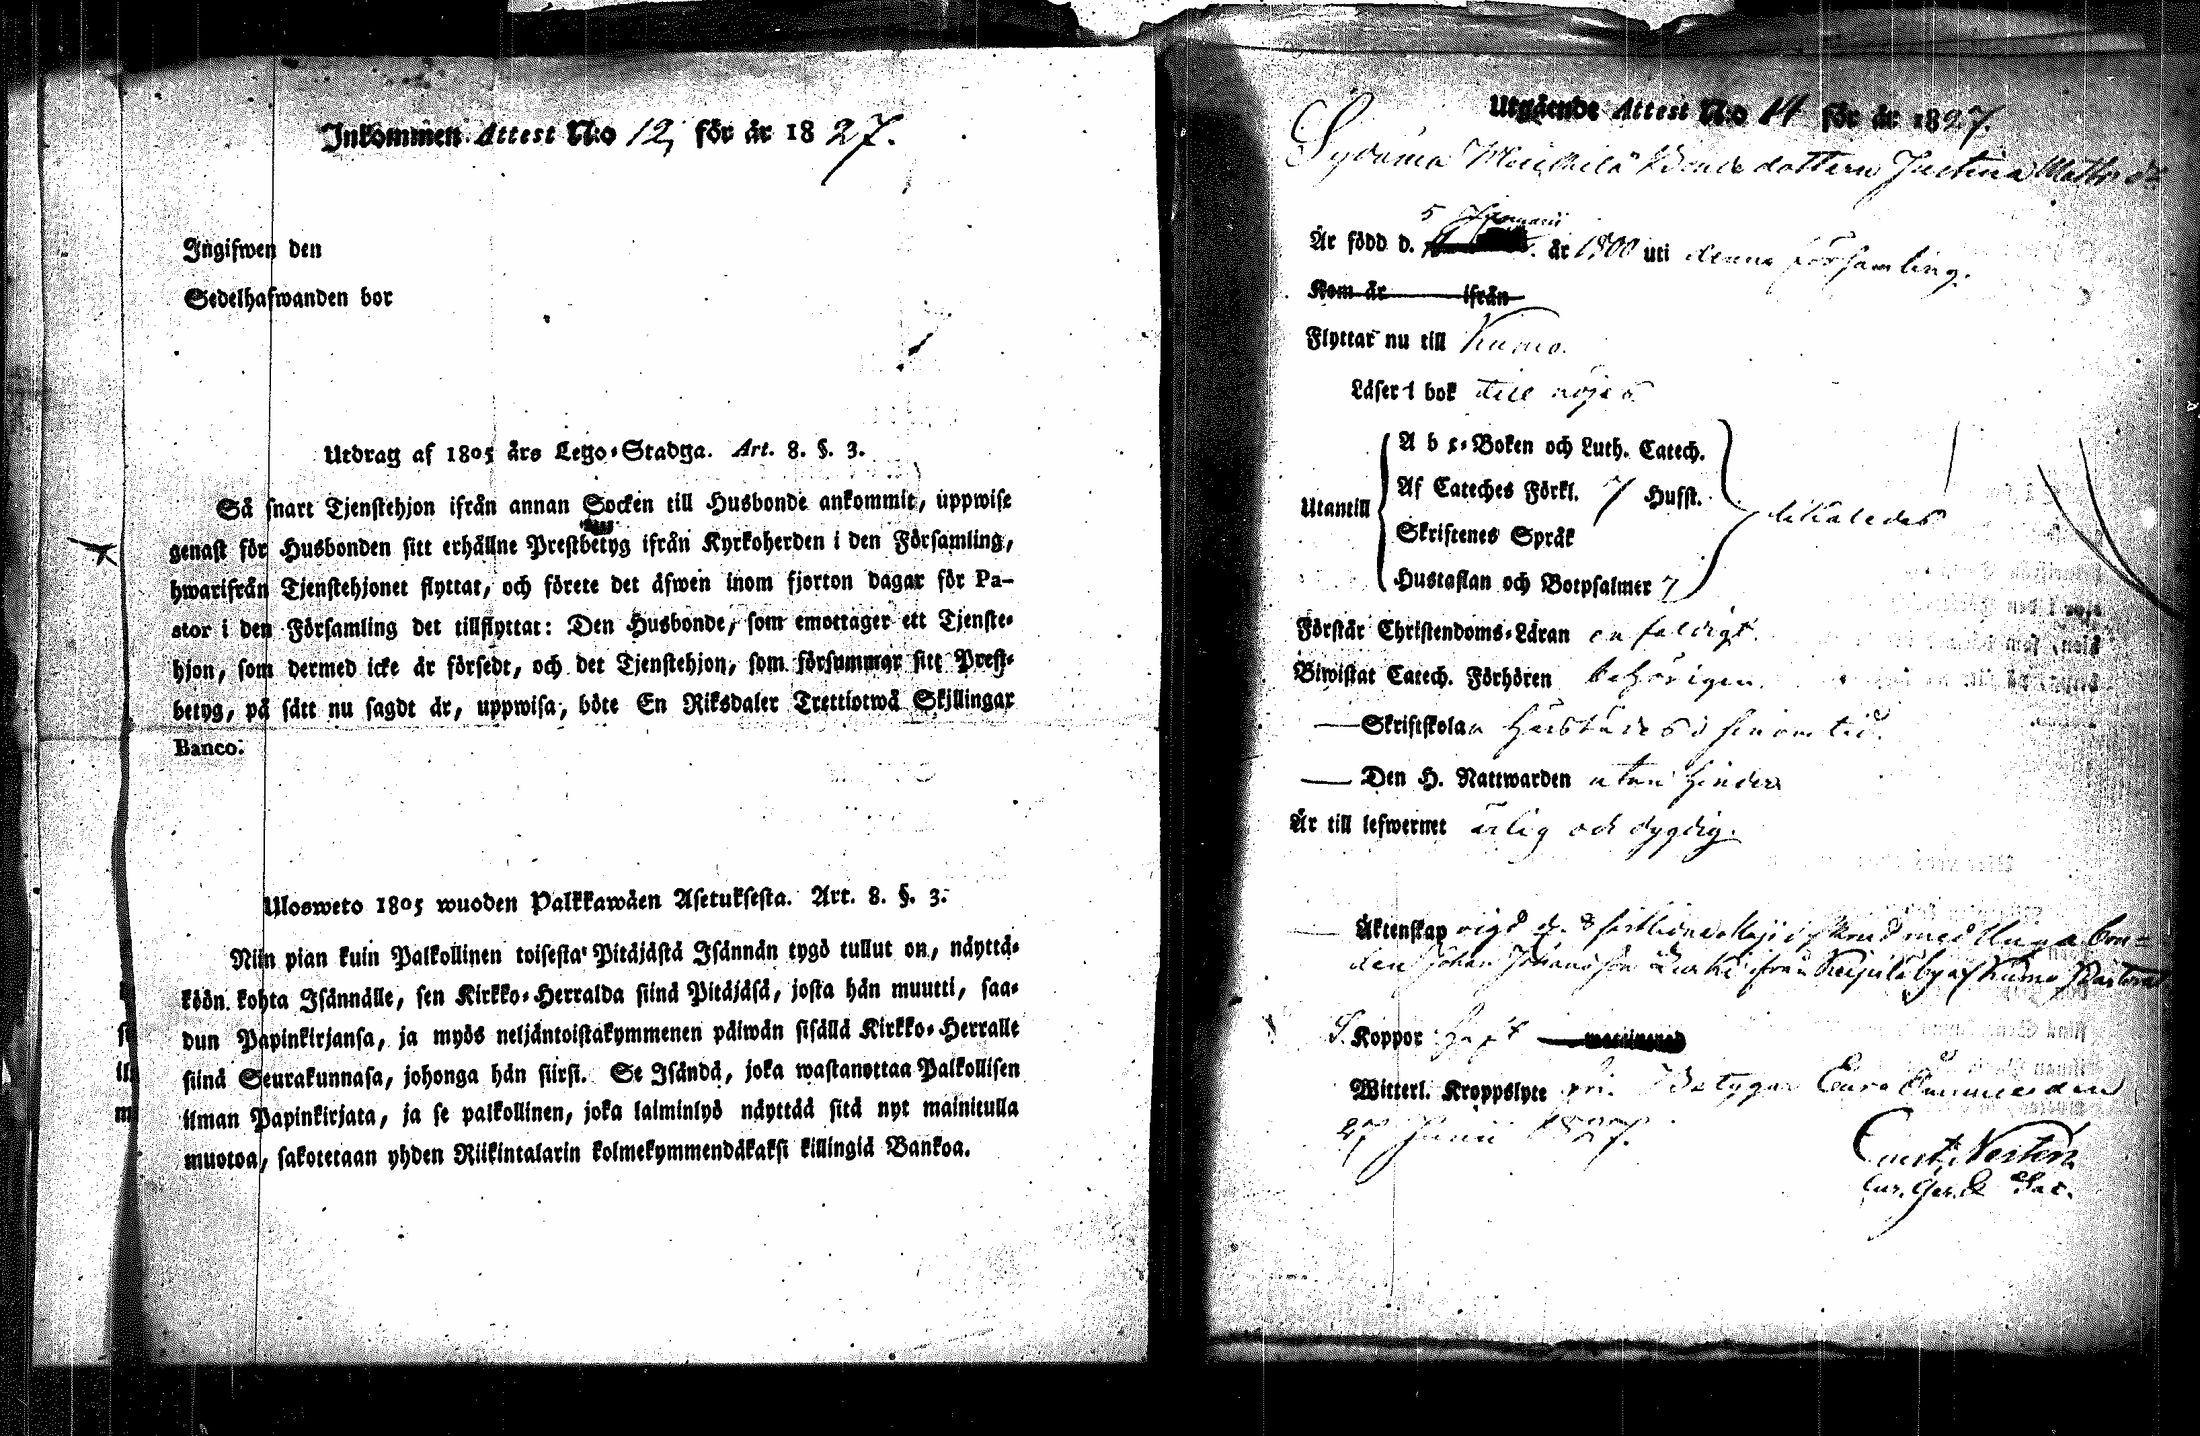 Inkommen Attest N:o 12, för år 1827.
Ingifwen den
Sedelhafwanden bor
Utdrag af 1805 års Lego-Stadga. Art. 8. §. 3.
Så snart Tjenstehjon ifrån annan Socken till Husbonde ankommit, uppwise
genast för Husbonden sitt erhållne Prestbetyg ifrån Kyrkoherden i den Församling,
hwarifrån Tjenstehjonet flyttat, och förete det äfwen inom fjorton dagar för Pa-
stor i den Församling det tillflyttat: Den Husbonde, som emottager ett Tjenste-
hjon, som dermed icke är försedt, och det Tjenstehjon, som försummar sitt Prest-
betyg, på sätt nu sagdt är, uppwisa, böte En Riksdaler Trettiotwå Skillingar
Banco.
Ulosweto 1805 wuoden Palkkawäen Asetuksesta. Art. 8. §. 3.
Niin pian kuin Palkollinen toisesta Pitäjästä Isännän tygö tullut on, näyttä-
köön kohta Isännälle, sen Kirkko-Herralda siinä Pitäjäsä, josta hän muutti, saa-
dun Papinkirjansa, ja myös neljäntoistakymmenen päiwän sisällä Kirkko-Herralle
siinä Seurakunnasa, johonga hän siirsi. Se Isändä, joka wastanottaa Palkollisen
ilman Papinkirjata, ja se palkollinen, joka laiminlyö näyttää sitä nyt mainitulla
muotoa, sakotetaan yhden Riikintalarin kolmekymmendäkaksi killingiä Bankoa.
Utgående Attest N:o 11 för år 1827.
Bondedottern Justina Matts dr
5 Januarii
Är född d. år 1800 uti denna församling.
Kom år ifrån
Flyttar nu till Kumo.
Läser i bok till nöjes
A b c-Boken och Luth. Catech.
Af Cateches Förkl. 7 Hufst.
Utantill likaledes
Skriftenes Språk
Hustaflan och Botpsalmer 7
Förstår Christendoms-Läran enfaldigt.
Biwistat Catech. Förhören behörigen.
Skriftskolan härstädes i sinom tid.
Den H. Nattwarden utan hinder
Är till lefwernet ärlig och dygdig.
Äktenskap vigd d. 8 sistl. med
den Johan Johansson ifrån by af Kumo Pastorat
Koppor haft
Witterl. Kroppslyte fri. Betygar Eura den
27 Junii 1827.
Ernst Nestén